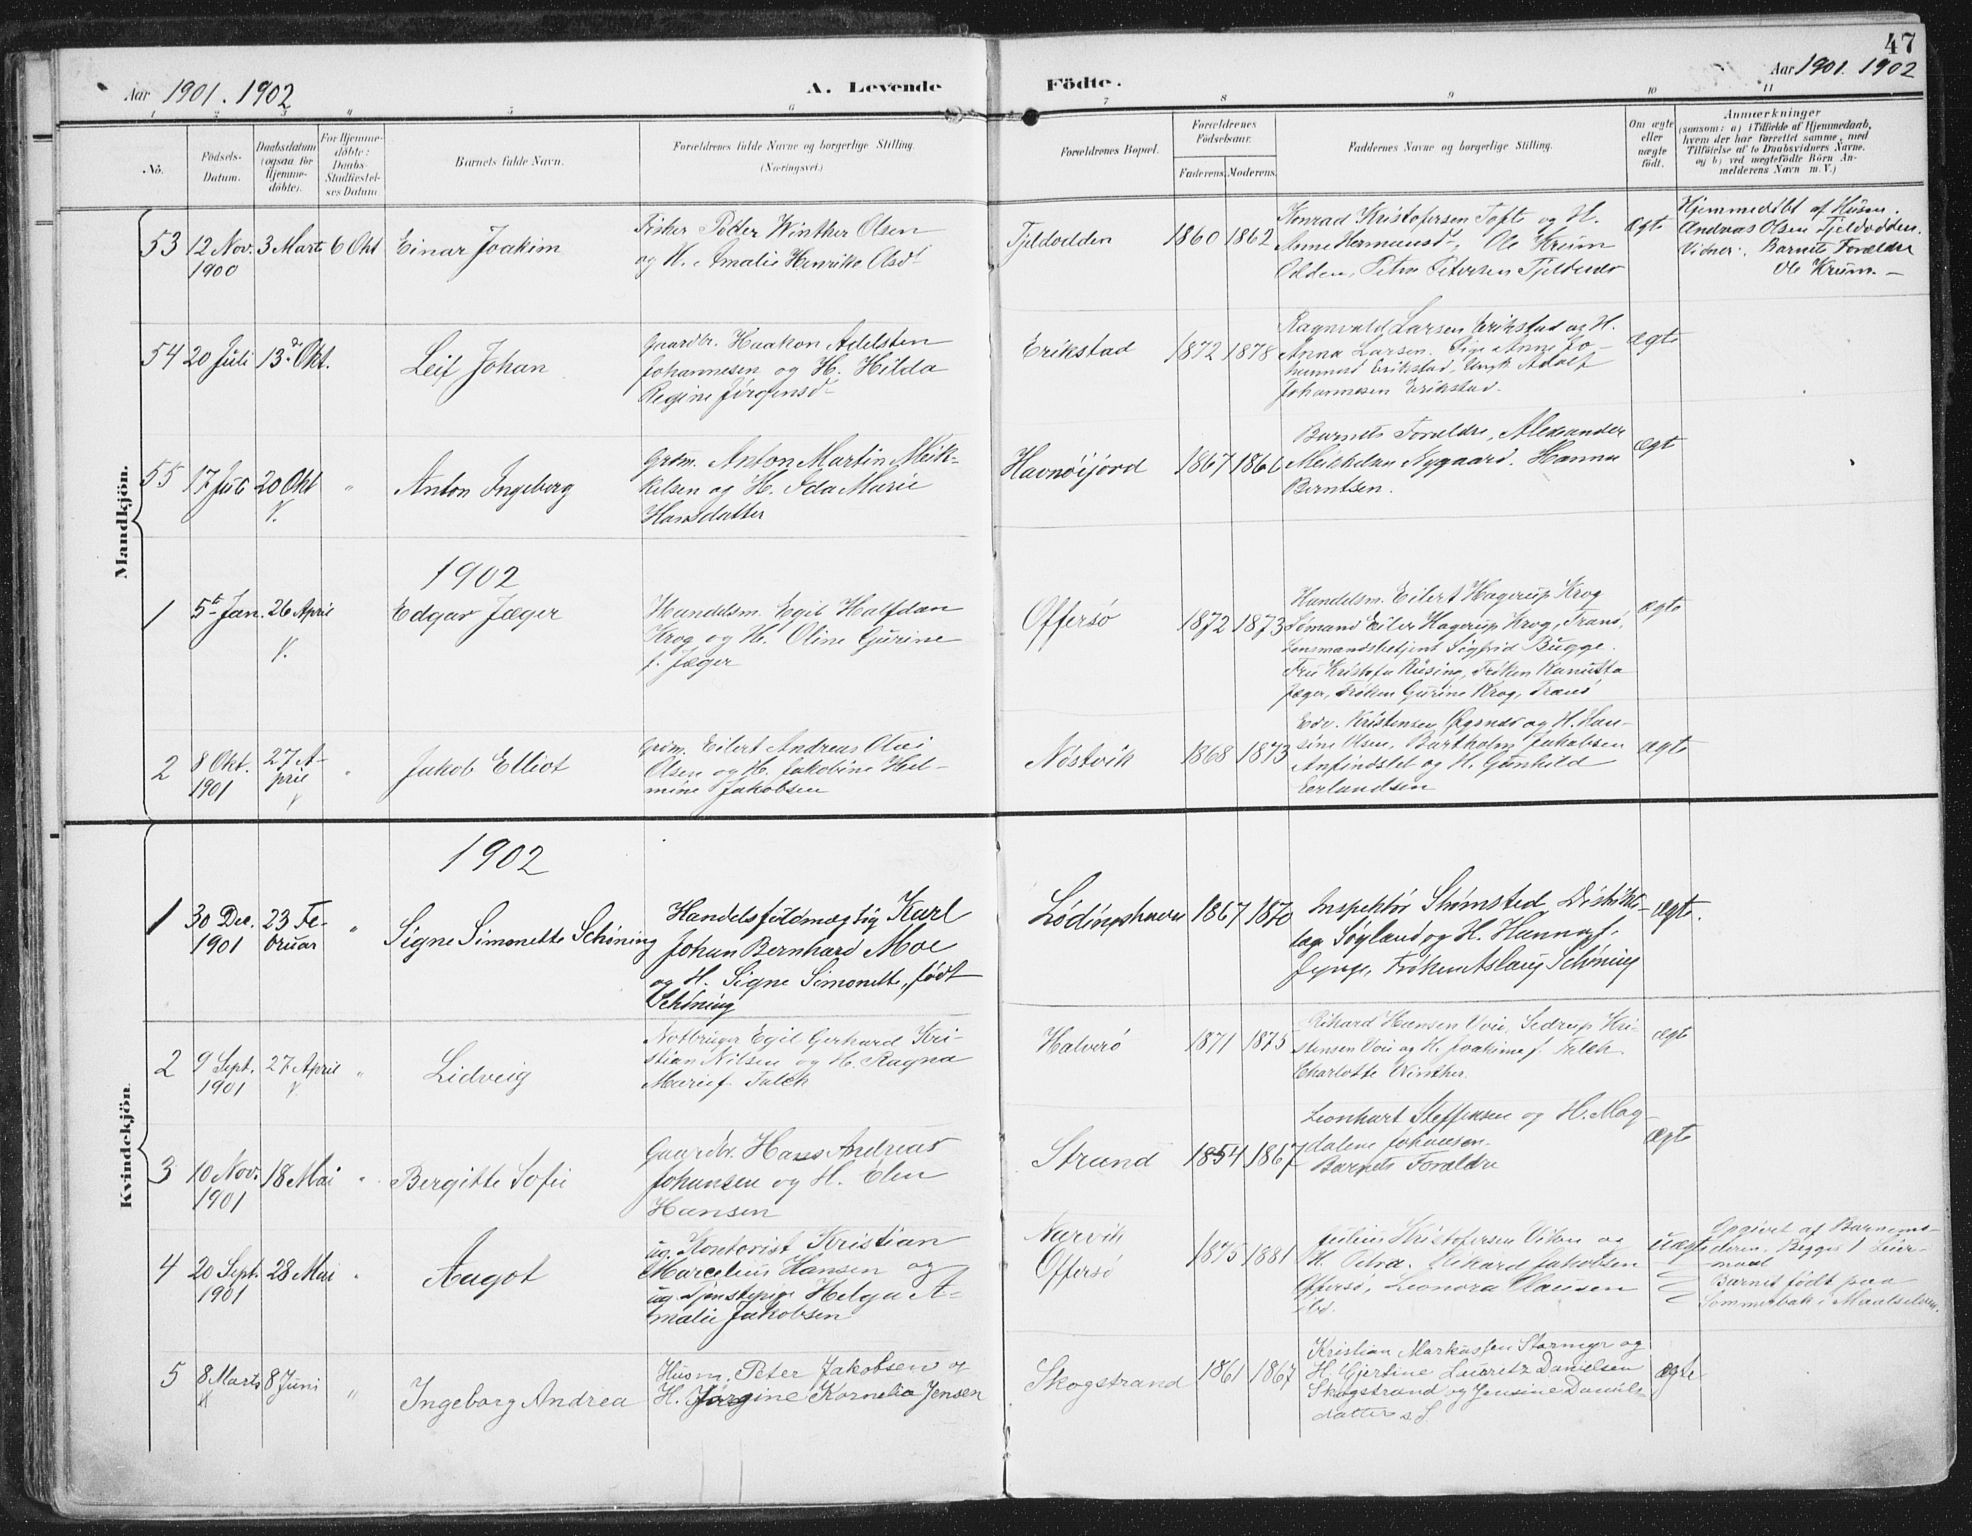 47
Aar 1901. 1902
A. Levende
Födte.
Aar 1901. 1902
1 2 3 4 5 6 7 8 9 10 11
No.
Födsels-
Datum.
Daabsdatum
(ogsaa for
Hjemme-
döbte).
For Hjemme-
döbte:
Daabs-
Stadfæstel-
ses Datum
Barnets fulde Navn.
Forældrenes fulde Navne og borgerlige Stilling.
(Næringsvei.)
Forældrenes Bopæl.
Forældrenes
Födselsaar.
Faderens. Moderens.
Faddernes Navne og borgerlige Stilling.
Om ægte
eller
uægte
født.
Anmærkninger
(saasom: a) i Tilfælde af Hjemmedaab,
hvem der har forrettet samme, med
Tilføielse af to Daabsvidners Navne.
og b) ved uægtefödte Börn An-
melderens Navn m. V.)
Mandkjön.
53 12 Nov. 1900 3 Marts 6 Okt Einar Joakim
Fisker Peder Winther Olsen
og H. Amalie Henrikke Olsdt
Tjeldodden 1860 1862
Konrad Kristofersen Tofte og H.
Anne Hermansd., Ole Krum
Olden, Petra Petersen Tjeldnes
ægte
Hjemmedøbt af Husm.
Andreas Olsen Tjeldodden.
Vidner: Barnets Forældre
Ole Krum.
54 20 Juli 13de Okt. Leif Johan
Gaardbr. Haakon Adelsten
Johannesen og H. Hilda
Regine Jørgensd
Erikstad 1872 1878
Ragnvald Larsen Erikstad og H.
Anna Larsen. Pige Anne Jo-
hannesd Erikstad, Ungk Adolf
Johannesen Erikstad.
ægte
55 17 Juli 20 Okt V. " Anton Ingeberg
Grdm. Anton Martin Meik-
kelsen og H. Ida Marie
Hansdatter
Havnøijord 1867 1866
Barnets Forældre, Alexander
Meikkelsen Nygaard. Hanna
Berntsen.
ægte
1902
1 5te Jan. 26 April V. Edgar Jæger
Handelsm. Egil Halfdan
Krog og H. Oline Gurine
f. Jæger
Offersø 1872 1873
Handelsm. Eilert Hagerup Krog
Sømand Eiler Hagerup Krog, Tranø,
Lensmandsbetjent Sigfrid Bugge.
Fru Kristofa Rusing, Frøken Kanutta
Jæger, Frøken Gurine Krog, Tranø
ægte
2 8 Okt. 1901 27 April V " Jakob Elliot
Grdm. Eilert Andreas Olai
Olsen og H. Jakobine Hel-
mine Jakobsen
Nøstvik 1868 1873
Edv. Kristensen Øksnes og H. Han-
sine Olsen, Bartholm Jakobsen
Anfindslet og H. Gunhild
Eerlandsen
ægte
Kvindekjön.
1902
1 30 Dec. 1901 23 Februar " Signe Simonette Schöning
Handelsfuldmægtig Karl
Johan Bernhard Moe
og H. Signe Simonette, født
Schöning
Lødingshavn 1867 1870
Inspektør Strømsted Distrikts-
læge Søyland og H. Hanna f.
Jynge, Frøken Aslaug Schöning
ægte.
2 9 Sept. 1901 27 April V. " Lidveig
Notbruger Egil Gerhard Kri-
stian Nilsen og H. Ragna
Marie f. Falch
Halverø 1871 1875
Rikard Hansen Voie, Sedrup Kri-
stensen Voie og H. Joakime f. Falch
Charlotte Winther.
ægte
3 10 Nov. 1901 18 Mai " Bergitte Sofie
Gaardbr. Hans Andreas
Johansen og H. Elen
Hansen
Strand 1854 1867
Leonhart Steffensen og H. Mag-
dalene Johansen.
Barnets Forældre
ægte
4 20 Sept. 1901 28 Mai " Aagot
ug. Kontorist Kristian
Marcelius Hansen og
ug. Tjenstepige Helga A-
malie Jakobsen
Narvik
Offersø 1875 1881
Julius Kristofersen Viken og
H. Petra. Rikard Jakobsen
Offersø, Leonora Clausen
ibd.
uægte
Opgivet af Barnemo-
deren. Begges 1 Leier-
maal
Barnet født paa
Sommerbak i Maalselven.
5 8 Marts 8 Juni " Ingeborg Andrea
Husm. Peter Jakobsen og
H. Jørgine Kornelia Jensen
Skogstrand 1861 1867
Kristian Markussen Stormyr og
H. Gjertine Lauretz Danielsen
Skogstrand og Jensine Daniels-
datter s S
ægte